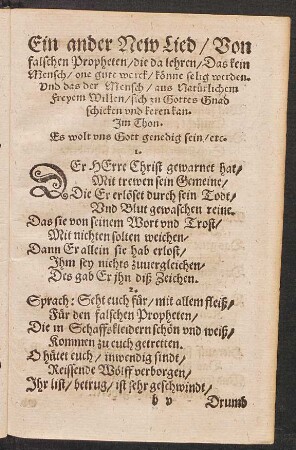 Ein ander New Lied / Von
falschen Propheten / die da lehren / Das kein
Mensch / one gute werck / könne selig werden.
Vnd das der Mensch / aus Natürlichem
Freyem Willen / sich zu Gottes Gnad
schicken vnd keren kan.
Im Thon.
Es wolt vns Gott genedig sein / etc.
1.
DEr HErre Christ gewarnet hat /
Mit trewen sein Gemeine /
Die Er erlöset durch sein Todt /
Vnd Blut gewaschen reine.
Das sie von seinem Wort vnd Trost /
Mit nichten solten weichen /
Dann Er allein sie hab erlost /
Ihm sey nichts zuuergleichen /
Des gab Er jhn diß Zeichen.
2.
Sprach: Seht euch für / mit allem fleiß /
Für den falschen Propheten /
Die in Schaffskleidern schön vnd weiß /
Kommen zu euch getretten.
O hütet euch / inwendig sindt /
Reissende Wölff verborgen /
Ihr list / betrug / ist sehr geschwindt /
b v
Drumb